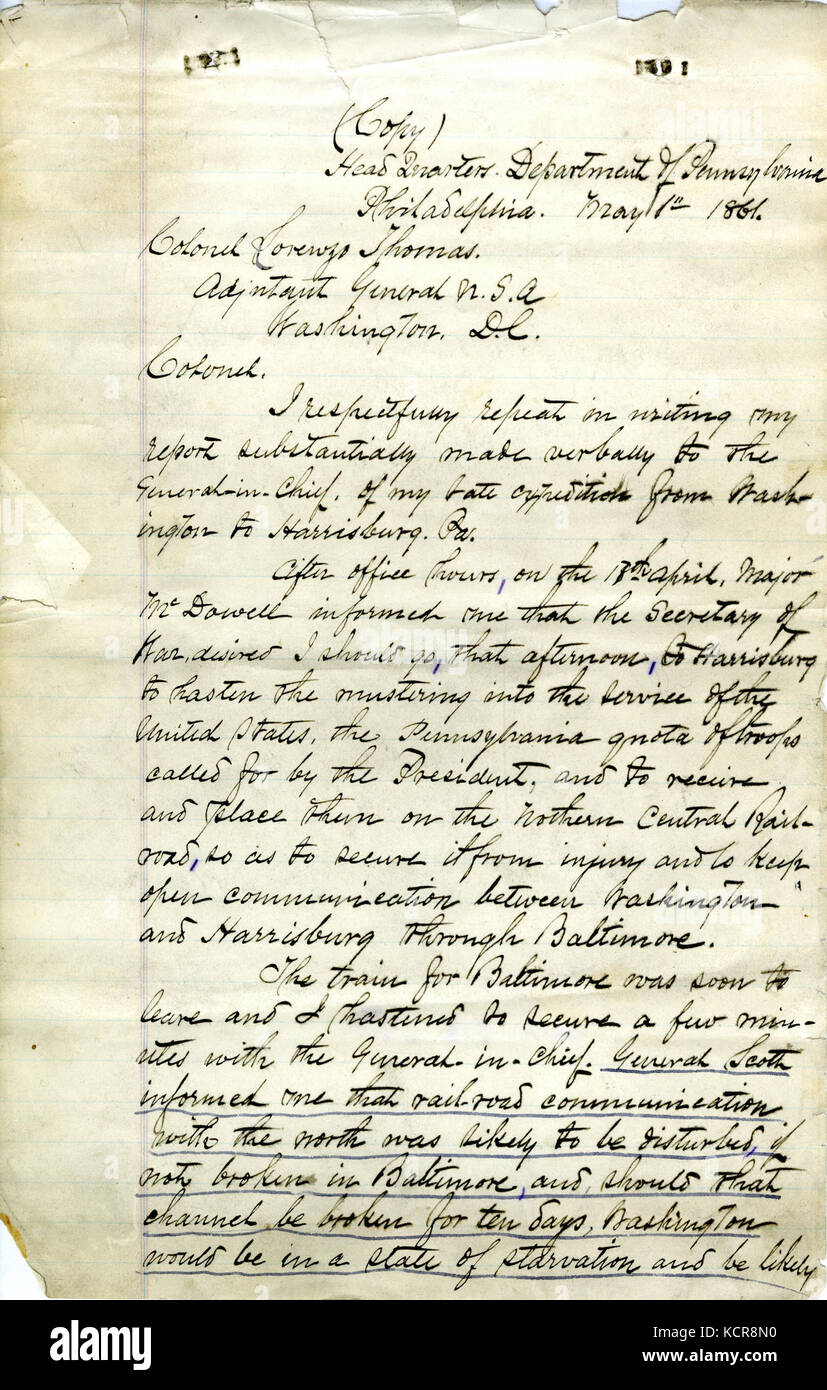 1891
(Copy)
Head Quarters. Department of Pennsylvania
Philadelphia. May 1st 1861.
Colonel Lorenzo Thomas.
Adjutant General U.S.A
Washington. D.C.
Colonel.
I respectfully repeat in writing my
report substantially made verbally to the
General-in-Chief, of my late expedition from Wash-
ington to Harrisburg. Pa.
After office hours, on the 18th April, Major
McDowell informed me that the Secretary of
War, desired I should go, that afternoon, to Harrisburg
to hasten the mustering into the service of the
United States, the Pennsylvania quota of troops
called for by the President, and to receive
and place them on the Nothern Central Rail-
road, so as to secure it from injury and to keep
open communication between Washington
and Harrisburg through Baltimore.
The train for Baltimore was soon to
leave and I hastened to secure a few min-
utes with the General-in-Chief. General Scott
informed me that rail-road communication
with the north was likely to be disturbed, if
not broken in Baltimore, and, should that
channel be broken for ten days, Washington
would be in a state of starvation and be likely
alamy
Image ID: KCR8N0
www.alamy.com